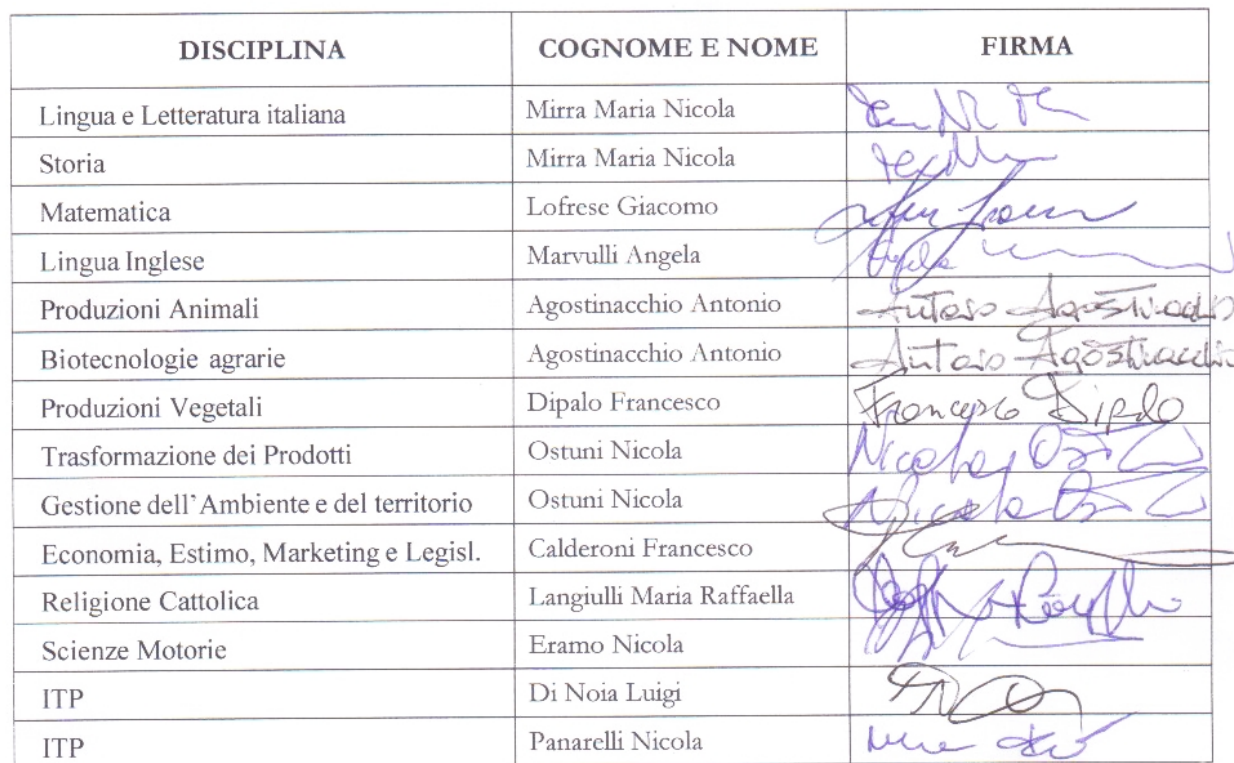 DISCIPLINA COGNOME E NOME FIRMA
Lingua e Letteratura italiana Mirra Maria Nicola
Storia Mirra Maria Nicola
Matematica Lofrese Giacomo
Lingua Inglese Marvulli Angela Angela
Produzioni Animali Agostinacchio Antonio Antonio Agostinacchio
Biotecnologie agrarie Agostinacchio Antonio Antonio Agostinacchio
Produzioni Vegetali Dipalo Francesco Francesco Dipalo
Trasformazione dei Prodotti Ostuni Nicola Nicola
Gestione dell'Ambiente e del territorio Ostuni Nicola Nicola
Economia, Estimo, Marketing e Legisl. Calderoni Francesco
Religione Cattolica Langiulli Maria Raffaella
Scienze Motorie Eramo Nicola
ITP Di Noia Luigi
ITP Panarelli Nicola